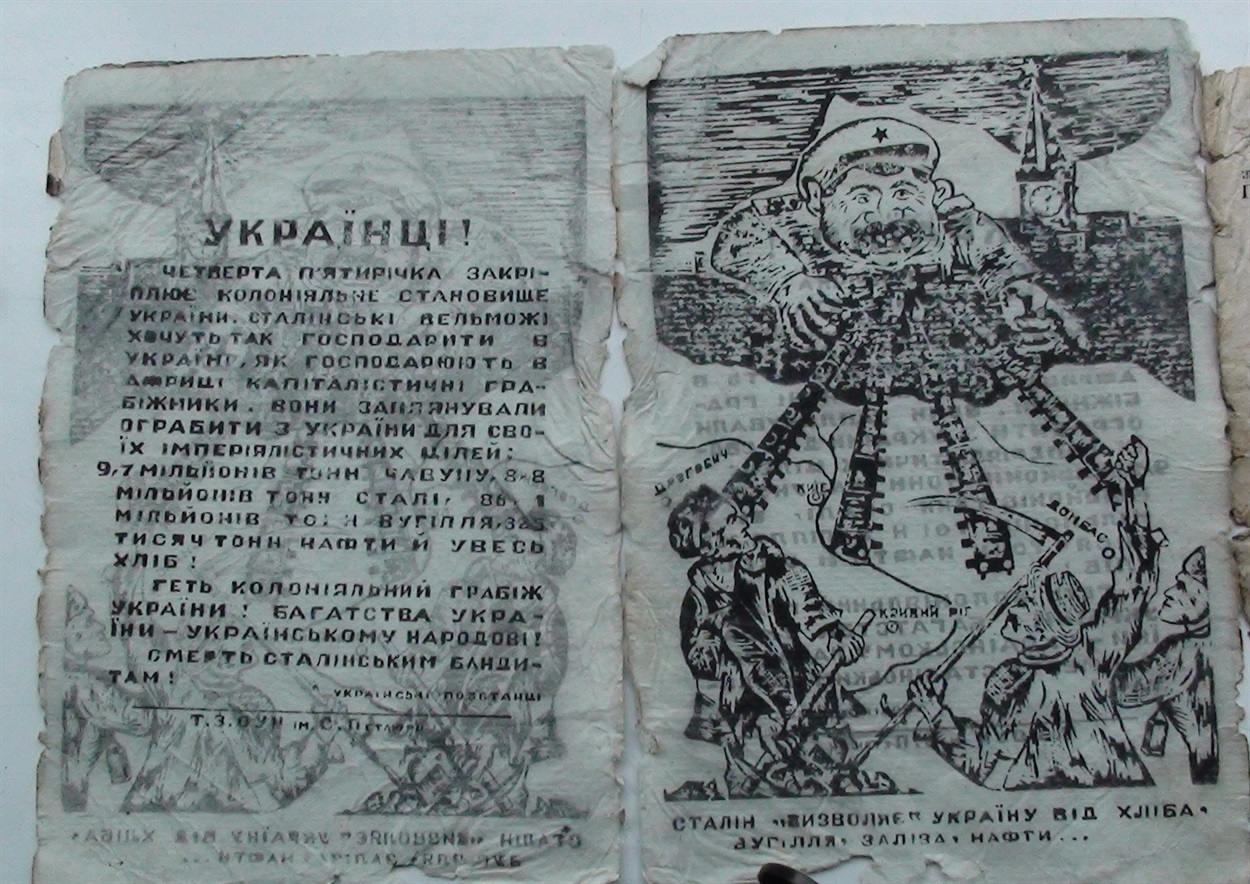 УКРАЇНЦІ!
ЧЕТВЕРТА П'ЯТИРІЧКА ЗАКРІ-
ПЛЮЄ КОЛОНІЯЛЬНЕ СТАНОВИЩЕ
УКРАЇНИ. СТАЛІНСЬКІ ВЕЛЬМОЖІ
ХОЧУТЬ ТАК ГОСПОДАРИТИ В
УКРАЇНІ, ЯК ГОСПОДАРЮЮТЬ В
АФРИЦІ КАПІТАЛІСТИЧНІ ГРА-
БІЖНИКИ. ВОНИ ЗАПЛЯНУВАЛИ
ОГРАБИТИ З УКРАЇНИ ДЛЯ СВО-
ЇХ ІМПЕРІЯЛІСТИЧНИХ ЦІЛЕЙ:
9,7 МІЛЬЙОНІВ ТОНН ЧАВУНУ, 8,8
МІЛЬЙОНІВ ТОНН СТАЛІ, 86,1
МІЛЬЙОНІВ ТОНН ВУГІЛЛЯ, 325
ТИСЯЧ ТОНН НАФТИ Й УВЕСЬ
ХЛІБ!
ГЕТЬ КОЛОНІЯЛЬНИЙ ГРАБІЖ
УКРАЇНИ! БАГАТСТВА УКРА-
ЇНИ – УКРАЇНСЬКОМУ НАРОДОВІ!
СМЕРТЬ СТАЛІНСЬКИМ БАНДИ-
ТАМ!
УКРАЇНСЬКІ ПОВСТАНЦІ
Т.З.ОУН ім. С. Петлюри
Дрогобич
КИЇВ
ДОНБАС
КРИВИЙ РІГ
СТАЛІН „ВИЗВОЛЯЄ" УКРАЇНУ ВІД ХЛІБА,
ВУГІЛЛЯ, ЗАЛІЗА, НАФТИ...